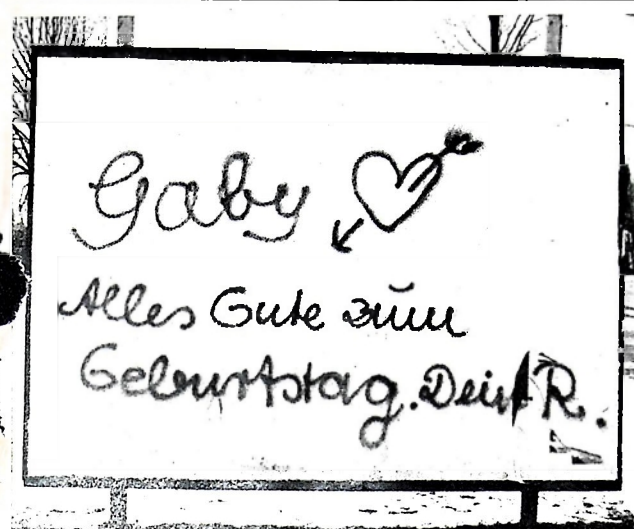 Gaby
Alles Gute zum
Geburtstag. Dein R.